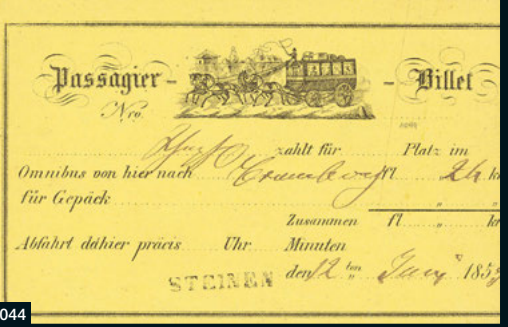 Passagier- - Billet
Nro.
zahlt für Platz im
Omnibus von hier nach fl 24 kr
für Gepäck " "
Zusammen fl " kr
Abfahrt dahier präcis Uhr Minuten
STEINEN den 12 ten " Juny 185
044